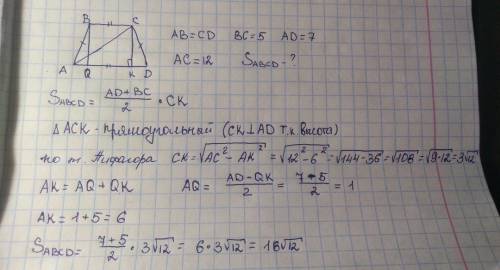 B C
A Q K D
AB=CD BC=5 AD=7
AC=12 S_ABCD - ?
S_ABCD = (AD+BC)/2 · CK
△ACK - прямоугольный (CK⊥AD т.к. высота)
по т. Пифагора CK = √(AC² - AK²) = √(12² - 6²) = √(144-36) = √108 = √(9·12) = 3√12
AK = AQ + QK AQ = (AD-QK)/2 = (7-5)/2 = 1
AK = 1+5 = 6
S_ABCD = (7+5)/2 · 3√12 = 6·3√12 = 18√12